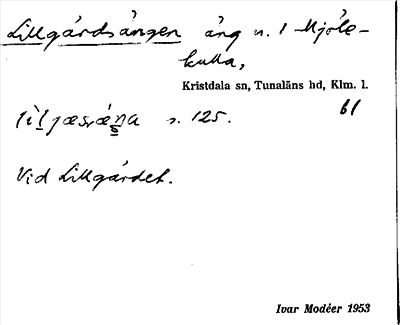 Lillgårdsängen äng n. 1 Mjöle-
kulla,
Kristdala sn, Tunaläns hd, Klm. l.
61
s. 125.
Vid Lillgårdet.
Ivar Modéer 1953